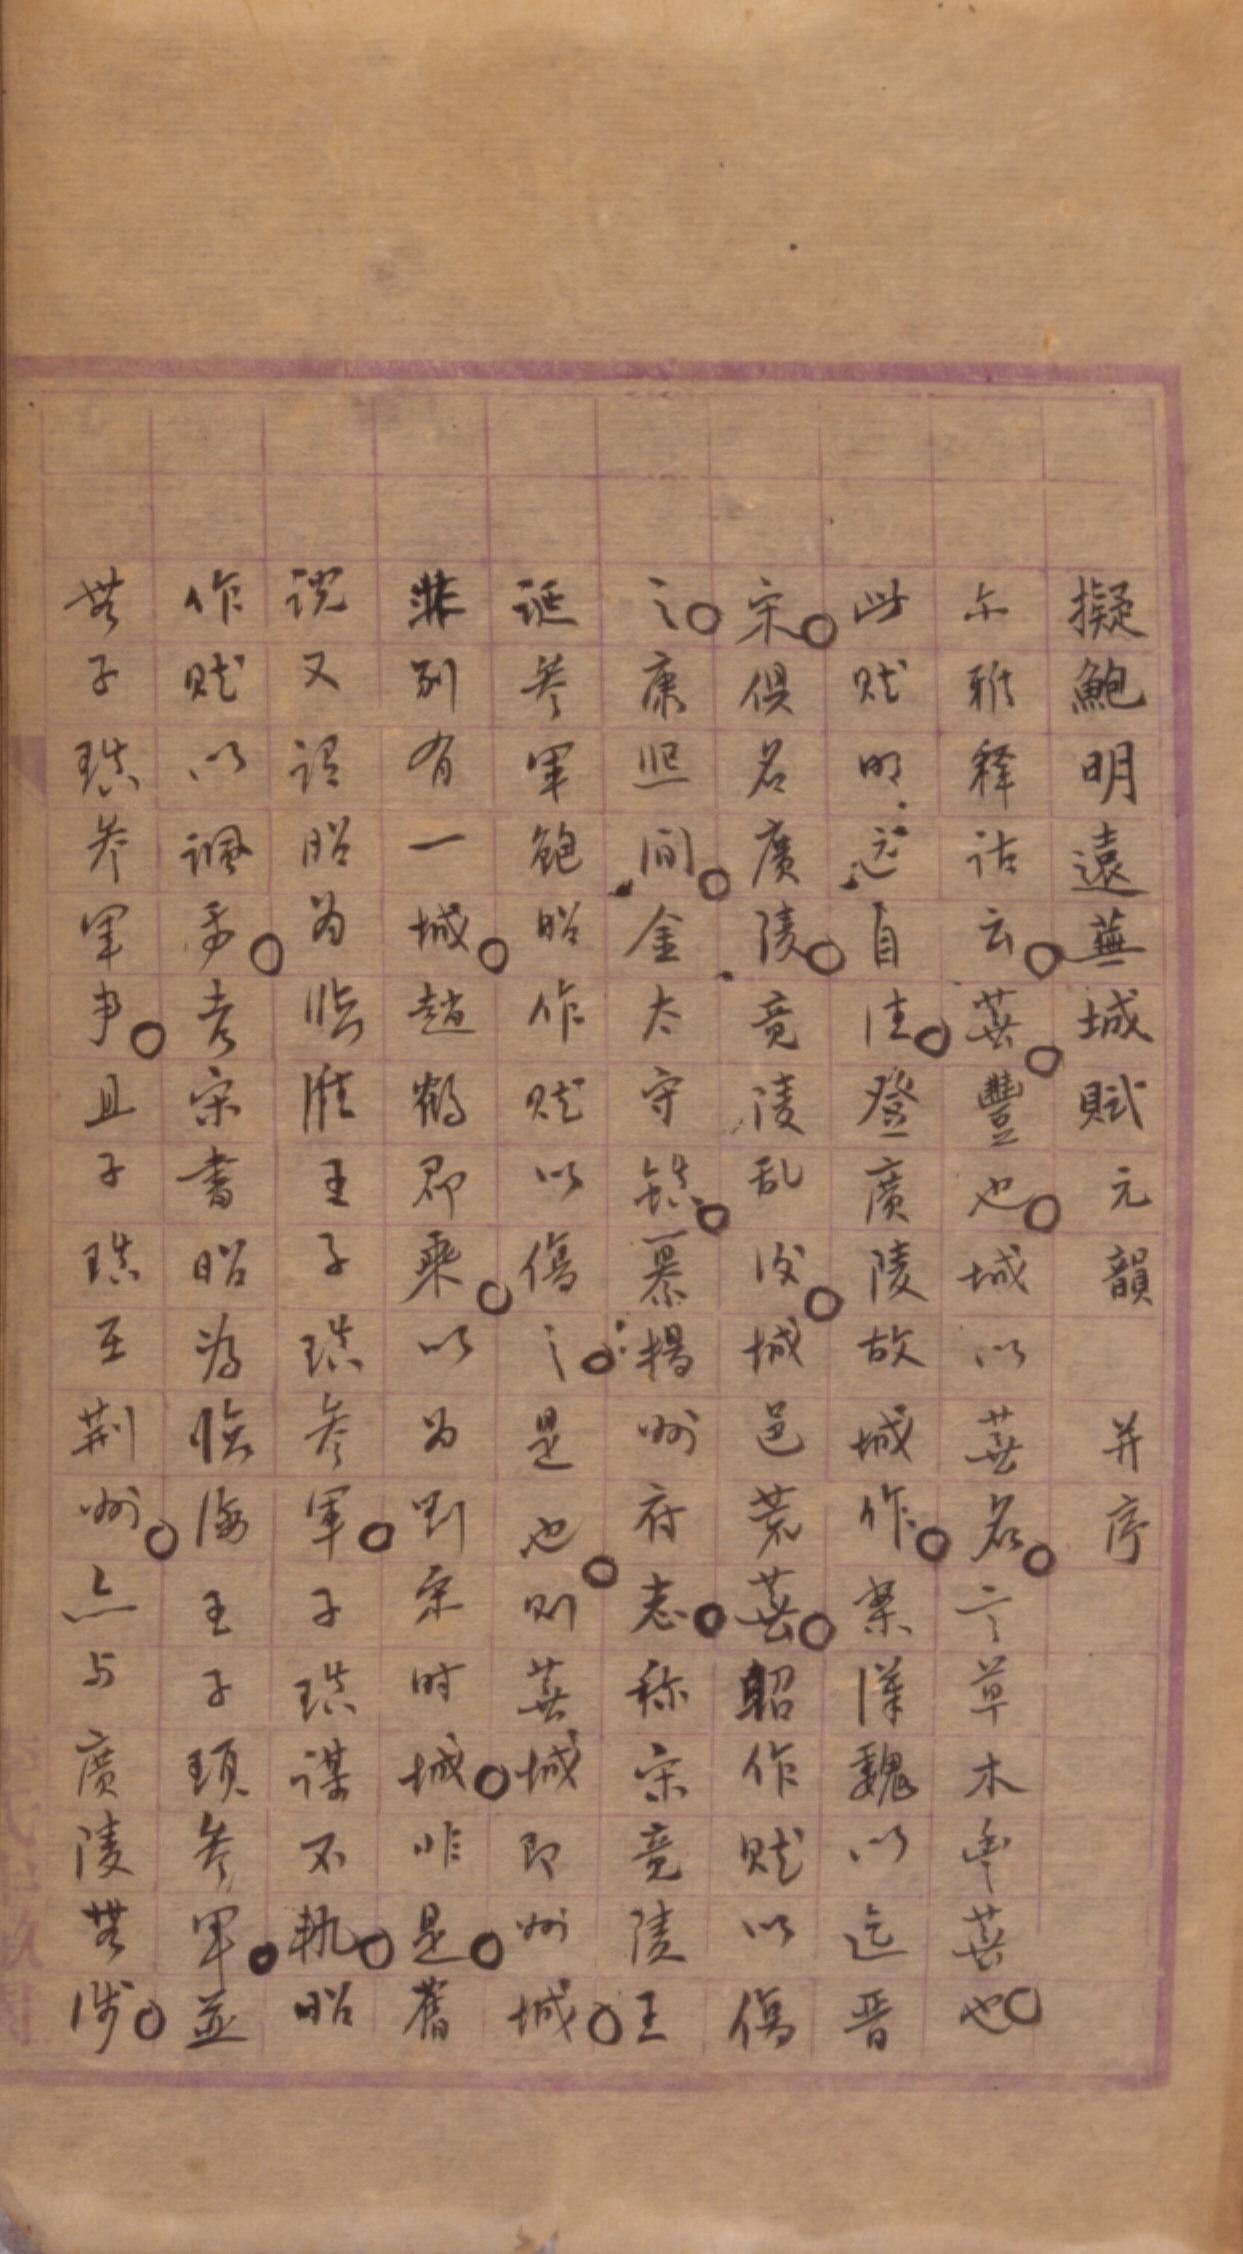 擬鮑明遠蕪城賦元韻 并序
尔雅释诂云蕪豐也城以蕪名言草木丰蕪也
此賦明远自注登廣陵故城作案漢魏以迄晋
宋俱名廣陵竟陵乱後城邑荒蕪照作賦以傷
之康熙间金太守鎮纂揚州府志称宋竟陵王
誕参軍鲍昭作賦以傷之是也则蕪城即州城
非别有一城趙鶴郡乘以为劉宋时城非是舊
说又谓昭为临淮王子瑱参軍子瑱谋不軌昭
作賦以諷焉考宋書昭為临海王子頊参軍並
無子瑱参軍事且子瑱至荆州亦与廣陵無涉